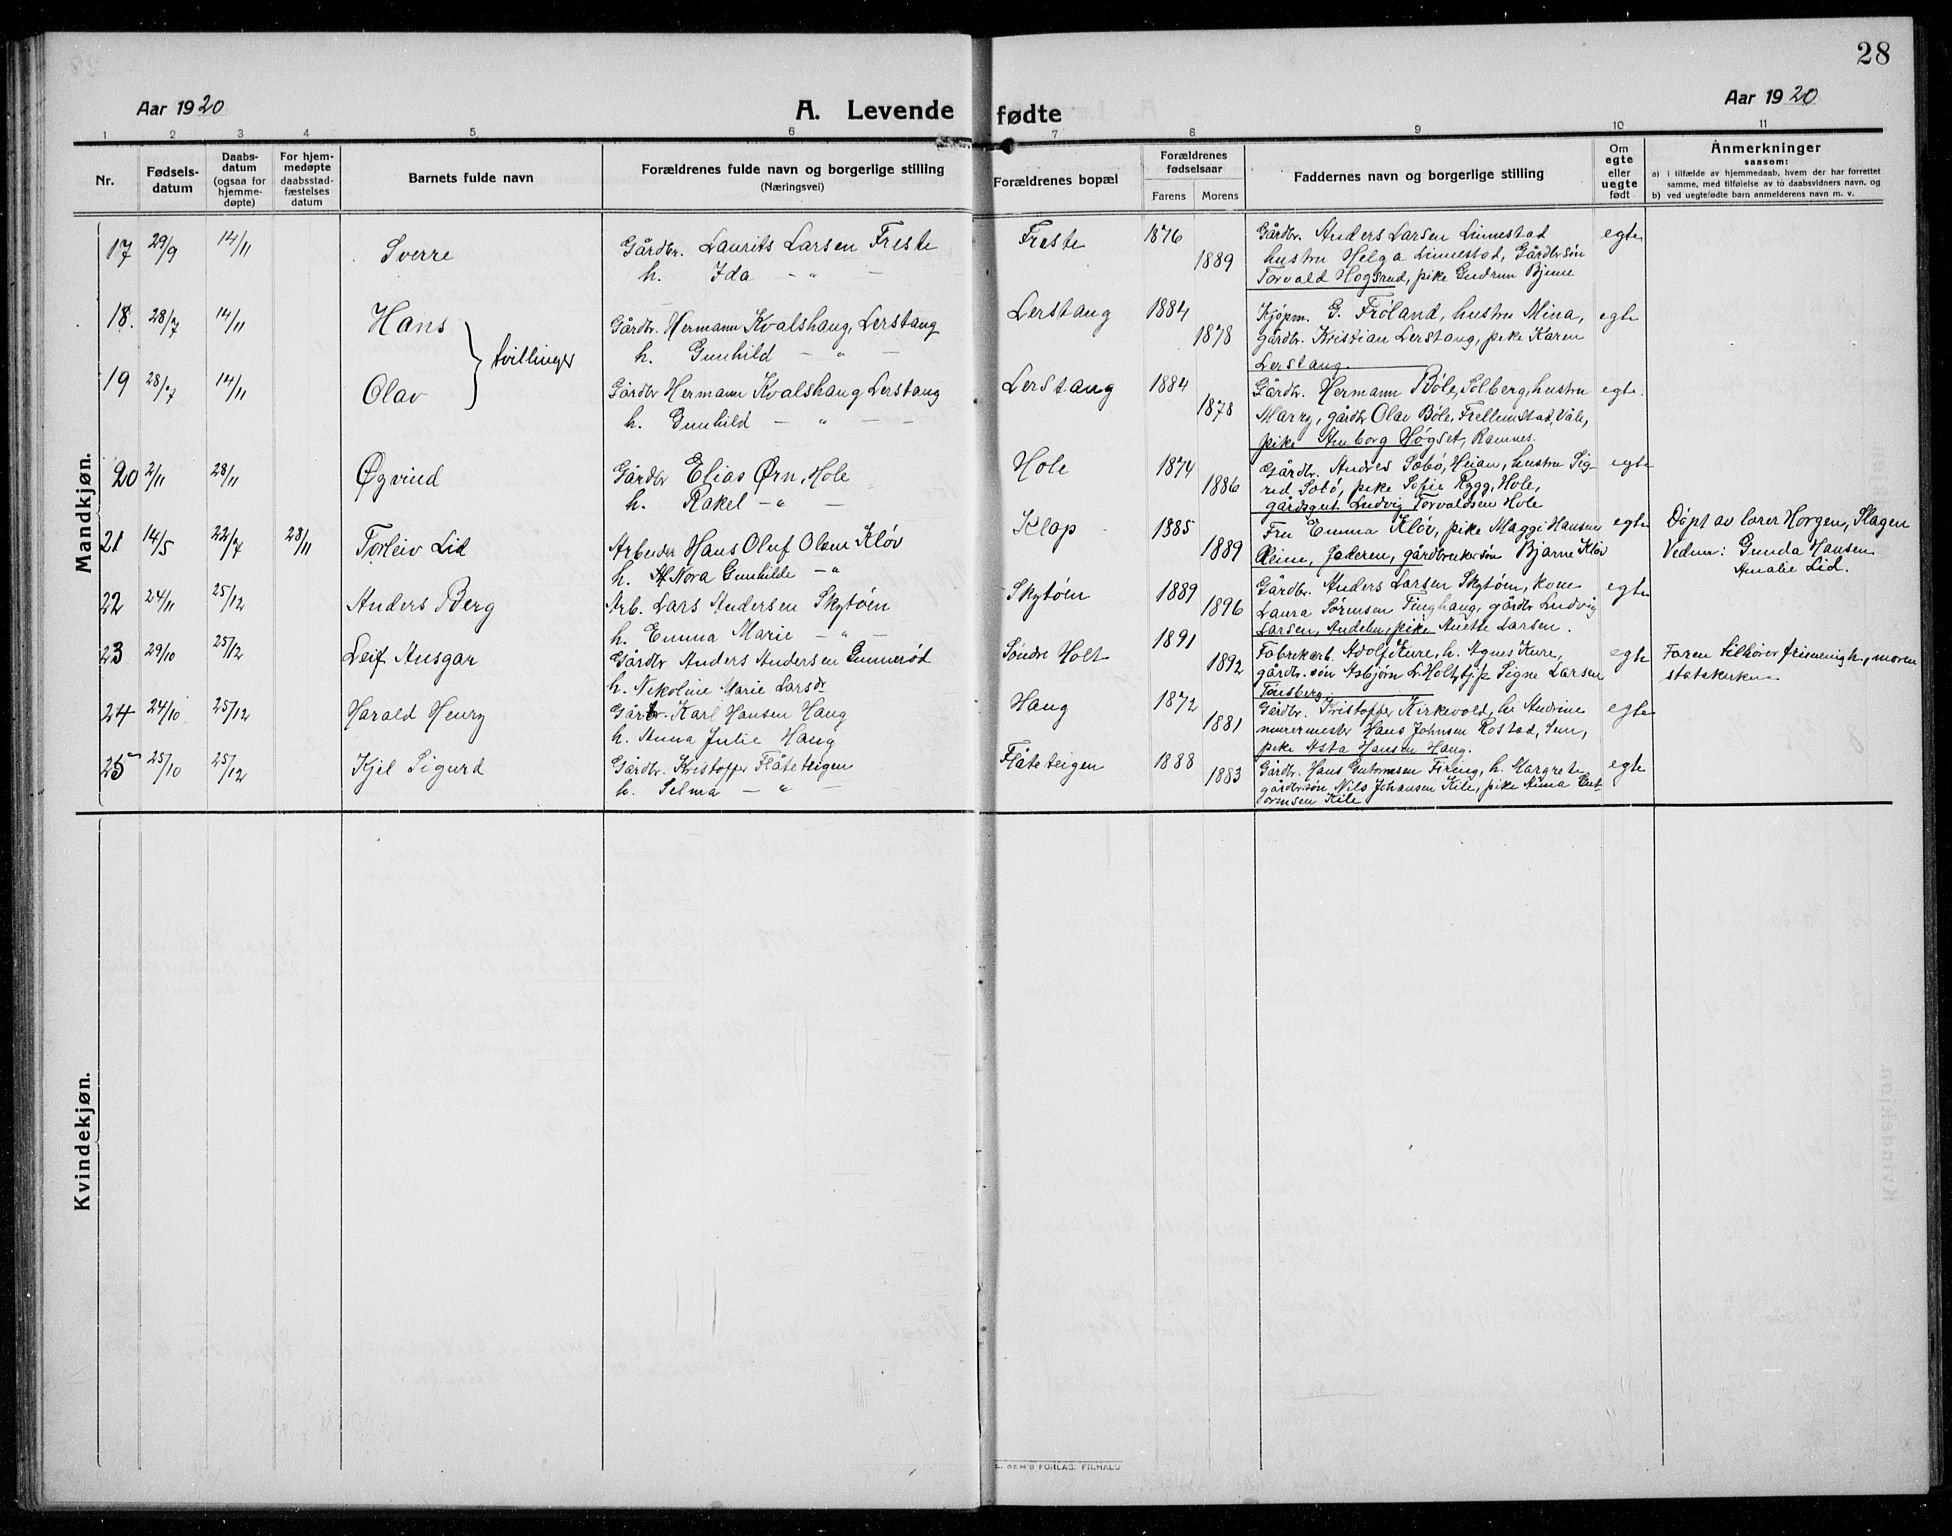 28
Aar 1920
A. Levende fødte
Aar 1920
1 2 3 4 5 6 7 8 9 10 11
Nr.
Fødsels-
datum
Daabs-
datum
(ogsaa for
hjemme-
døpte)
For hjem-
medøpte
daabsstad-
fæstelses
datum
Barnets fulde navn
Forældrenes fulde navn og borgerlige stilling
(Næringsvei)
Forældrenes bopæl
Forældrenes
fødselsaar
Farens
Morens
Faddernes navn og borgerlige stilling
Om
egte
eller
uegte
født
Anmerkninger
saasom:
a) i tilfælde av hjemmedaab, hvem der har forrettet
samme, med tilføielse av to daabsvidners navn, og
b) ved uegtefødte barn anmelderens navn m. v.
Mandkjøn.
17 29/9 14/11 Sverre
Gårdbr. Laurits Larsen Freste
h. Ida — " —
Freste 1876 1889
Gårdbr. Anders Larsen Linnestad
hustru Helga Linnestad, Gårdbr søn
Torvald Hogsrud, pike Gudrun Bjune
egte
18. 28/7 14/11 Hans
tvillinger
Gårdbr. Hermann Kvalshaug, Lerstang
h. Gunhild — " —
Lerstang 1884 1878
Kjøpm. G. Frøland, hustru Mina,
gårdbr. Kristian Lerstang, pike Karen
Lerstang.
egte
19 28/7 14/11 Olav
Gårdbr Hermann Kvalshaug Lerstang
h. Gunhild — " —
Lerstang 1884 1878
Gårdbr. Hermann Bøle, Solberg, hustru
Marry, gårdbr Olav Bøle, Våle,
pike Høgset, Ramnes.
egte.
20 2/11 28/11 Øgvind
Gårdbr Elias Ørn, Hole
h. Rakel — " —
Hole 1874 1886
Gårdbr. Andres Sæbø, Heian, hustru Sig-
rid Sæbø, pike Sofie Rygg, Hole,
gårdsgut Ludvig Torvaldsen Hole
egte
21 14/5 22/7 28/11 Torleiv Lid
Arbeider Hans Oluf Olsen Kløv
h. Nora Gunhilde — "
Klop 1885 1889
Fru Emma Kløv, pike Maggi Hansen
faderen, gårdbrukersøn Bjarne Kløv
egte
Døpt av lærer Horgen, Slagen
Vedner: Gunda Hansen
Amalie Lid.
22 24/11 25/12 Anders Berg
Arb. Lars Andersen Skytøm
h. Emma Marie — " —
Skytøm 1889 1896
Gårdbr. Anders Larsen Skytøm, kone
Laura Sørensen Tinghaug, gårdbr Ludvig
Larsen, Andebu, pike Anette Larsen.
egte
23 29/10 25/12 Leif Ansgar
Gårdbr Anders Andersen Gunnerød
h. Nikoline Marie Larsdr
Søndre Holt 1891 1892
Fabrikarb. Adolf Kure, h. Agnes Kure,
gårdbr. søn Asbjørn L. Holt, tjp Signe Larsen
Tønsberg
egte
Faren tilhører frimenigh., moren
statskirken
24 24/10 25/12 Harald Henry
Gårdbr. Karl Hansen Haug
h. Anna Julie Haug
Haug 1872 1881
Gårdbr. Kristoffer Kirkevold, h. Andrine
murermester Hans Johnsen Rostad, Sem,
pike Asta Hansen Haug.
egte
25 25/10 25/12 Kjel Sigurd
Gårdbr. Kristoffer Flåteteigen
h. Selma — " —
Flåteteigen 1888 1883
Gårdbr. Hans Guttormsen Firing, h. Margrete
gårdbr.søn Nils Johansen Kile, pike Anna Gut-
tormsen Kile
egte
Kvindekjøn.